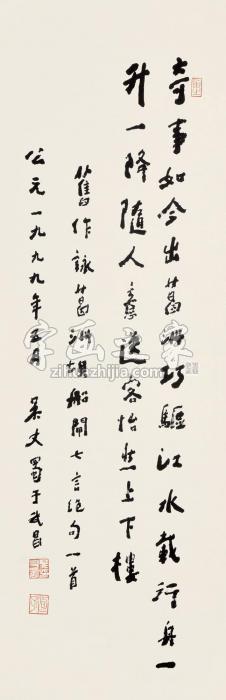 奇事如今出葛洲巧驅江水載行舟一
升一降隨人意送客怡然上下樓
舊作詠葛洲垻船閘七言絕句一首
公元一九九九年五月 吴丈蜀于武昌
字画之家